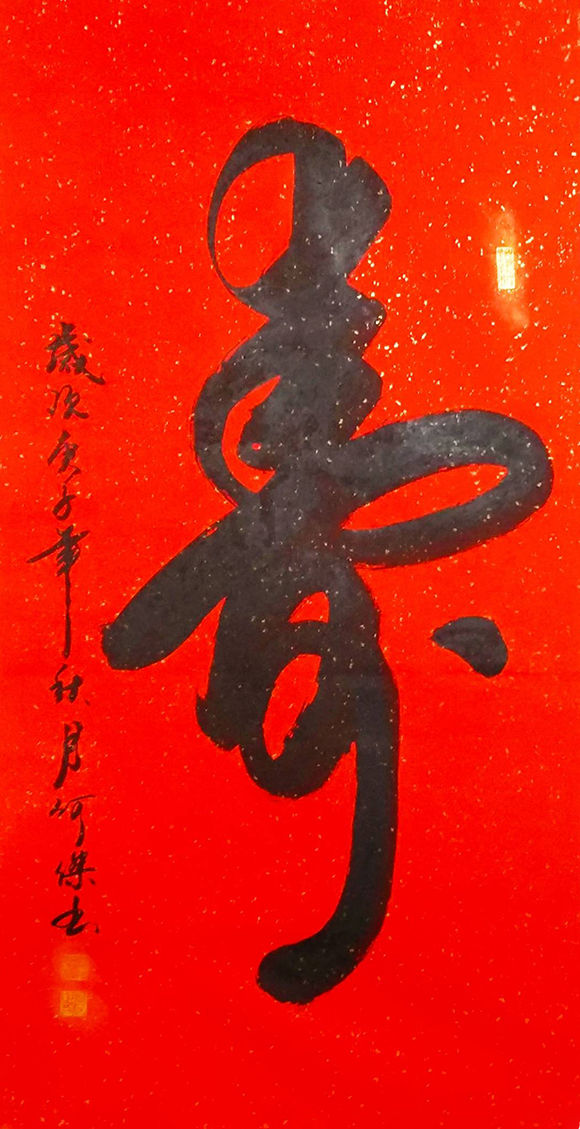 壽
歲次庚子年秋月何傑書